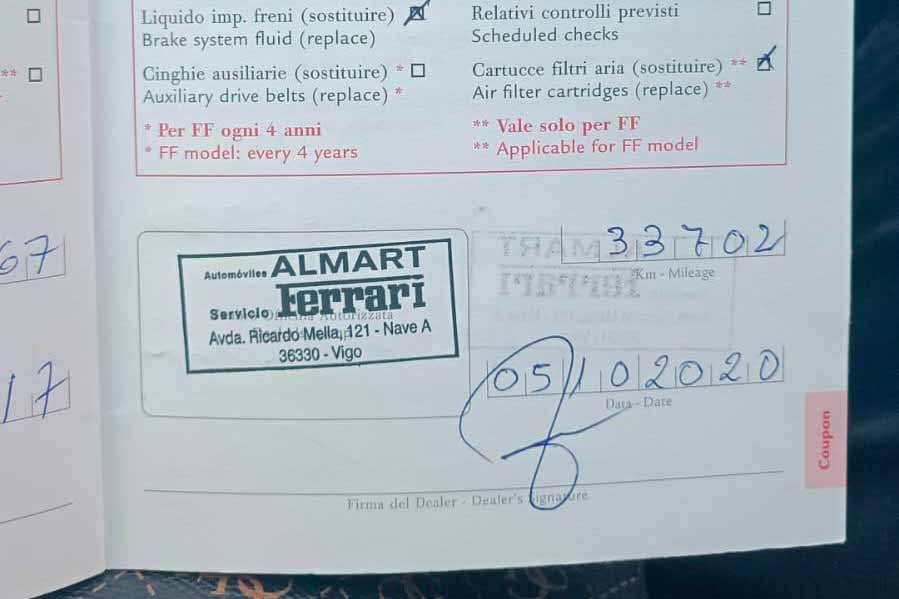 Liquido imp. freni (sostituire)
Brake system fluid (replace)
Cinghie ausiliarie (sostituire) *
Auxiliary drive belts (replace) *
* Per FF ogni 4 anni
* FF model: every 4 years
Relativi controlli previsti
Scheduled checks
Cartucce filtri aria (sostituire) **
Air filter cartridges (replace) **
** Vale solo per FF
** Applicable for FF model
**
67
17
Automóviles ALMART
Servicio ferrari
Avda. Ricardo Mella, 121 - Nave A
36330 - Vigo
Autorizzata
33702
Km - Mileage
05102020
Data - Date
Firma del Dealer - Dealer's Signature
Coupon